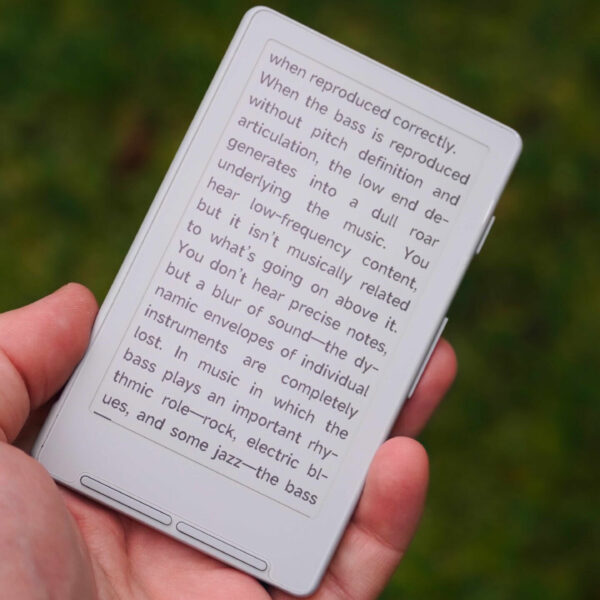 when reproduced correctly.
When the bass is reproduced
without pitch definition and
articulation, the low end de-
generates into a dull roar
underlying the music. You
hear low-frequency content,
but it isn't musically related
to what's going on above it.
You don't hear precise notes,
but a blur of sound—the dy-
namic envelopes of individual
instruments are completely
lost. In music in which the
bass plays an important rhy-
thmic role—rock, electric bl-
ues, and some jazz—the bass